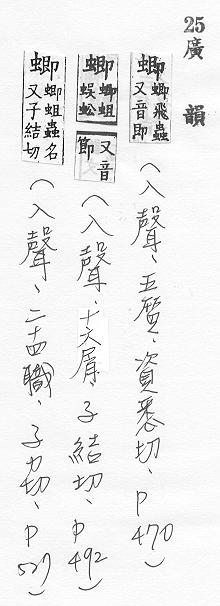 25 廣韻
蝍 蝍飛蟲又音即 (入聲、五質、資悉切、P470)
蝍 蝍蛆蜈蚣又音節 (入聲、十六屑、子結切、P492)
蝍 蝍蛆蟲名又子結切 (入聲、二十四職、子力切、P527)